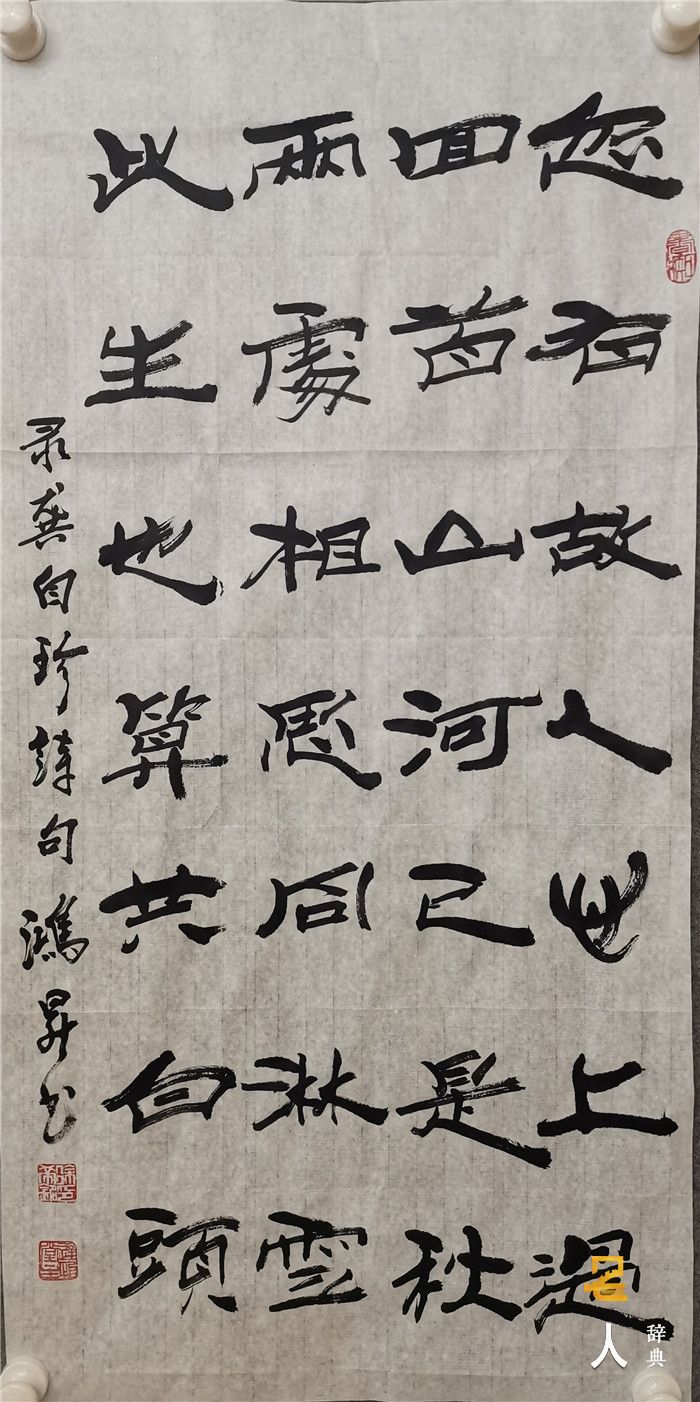 忽有故人心上過
回首山河已是秋
兩處相思同淋雪
此生也算共白頭
录龚自珍詩句鴻昇书
名人辞典